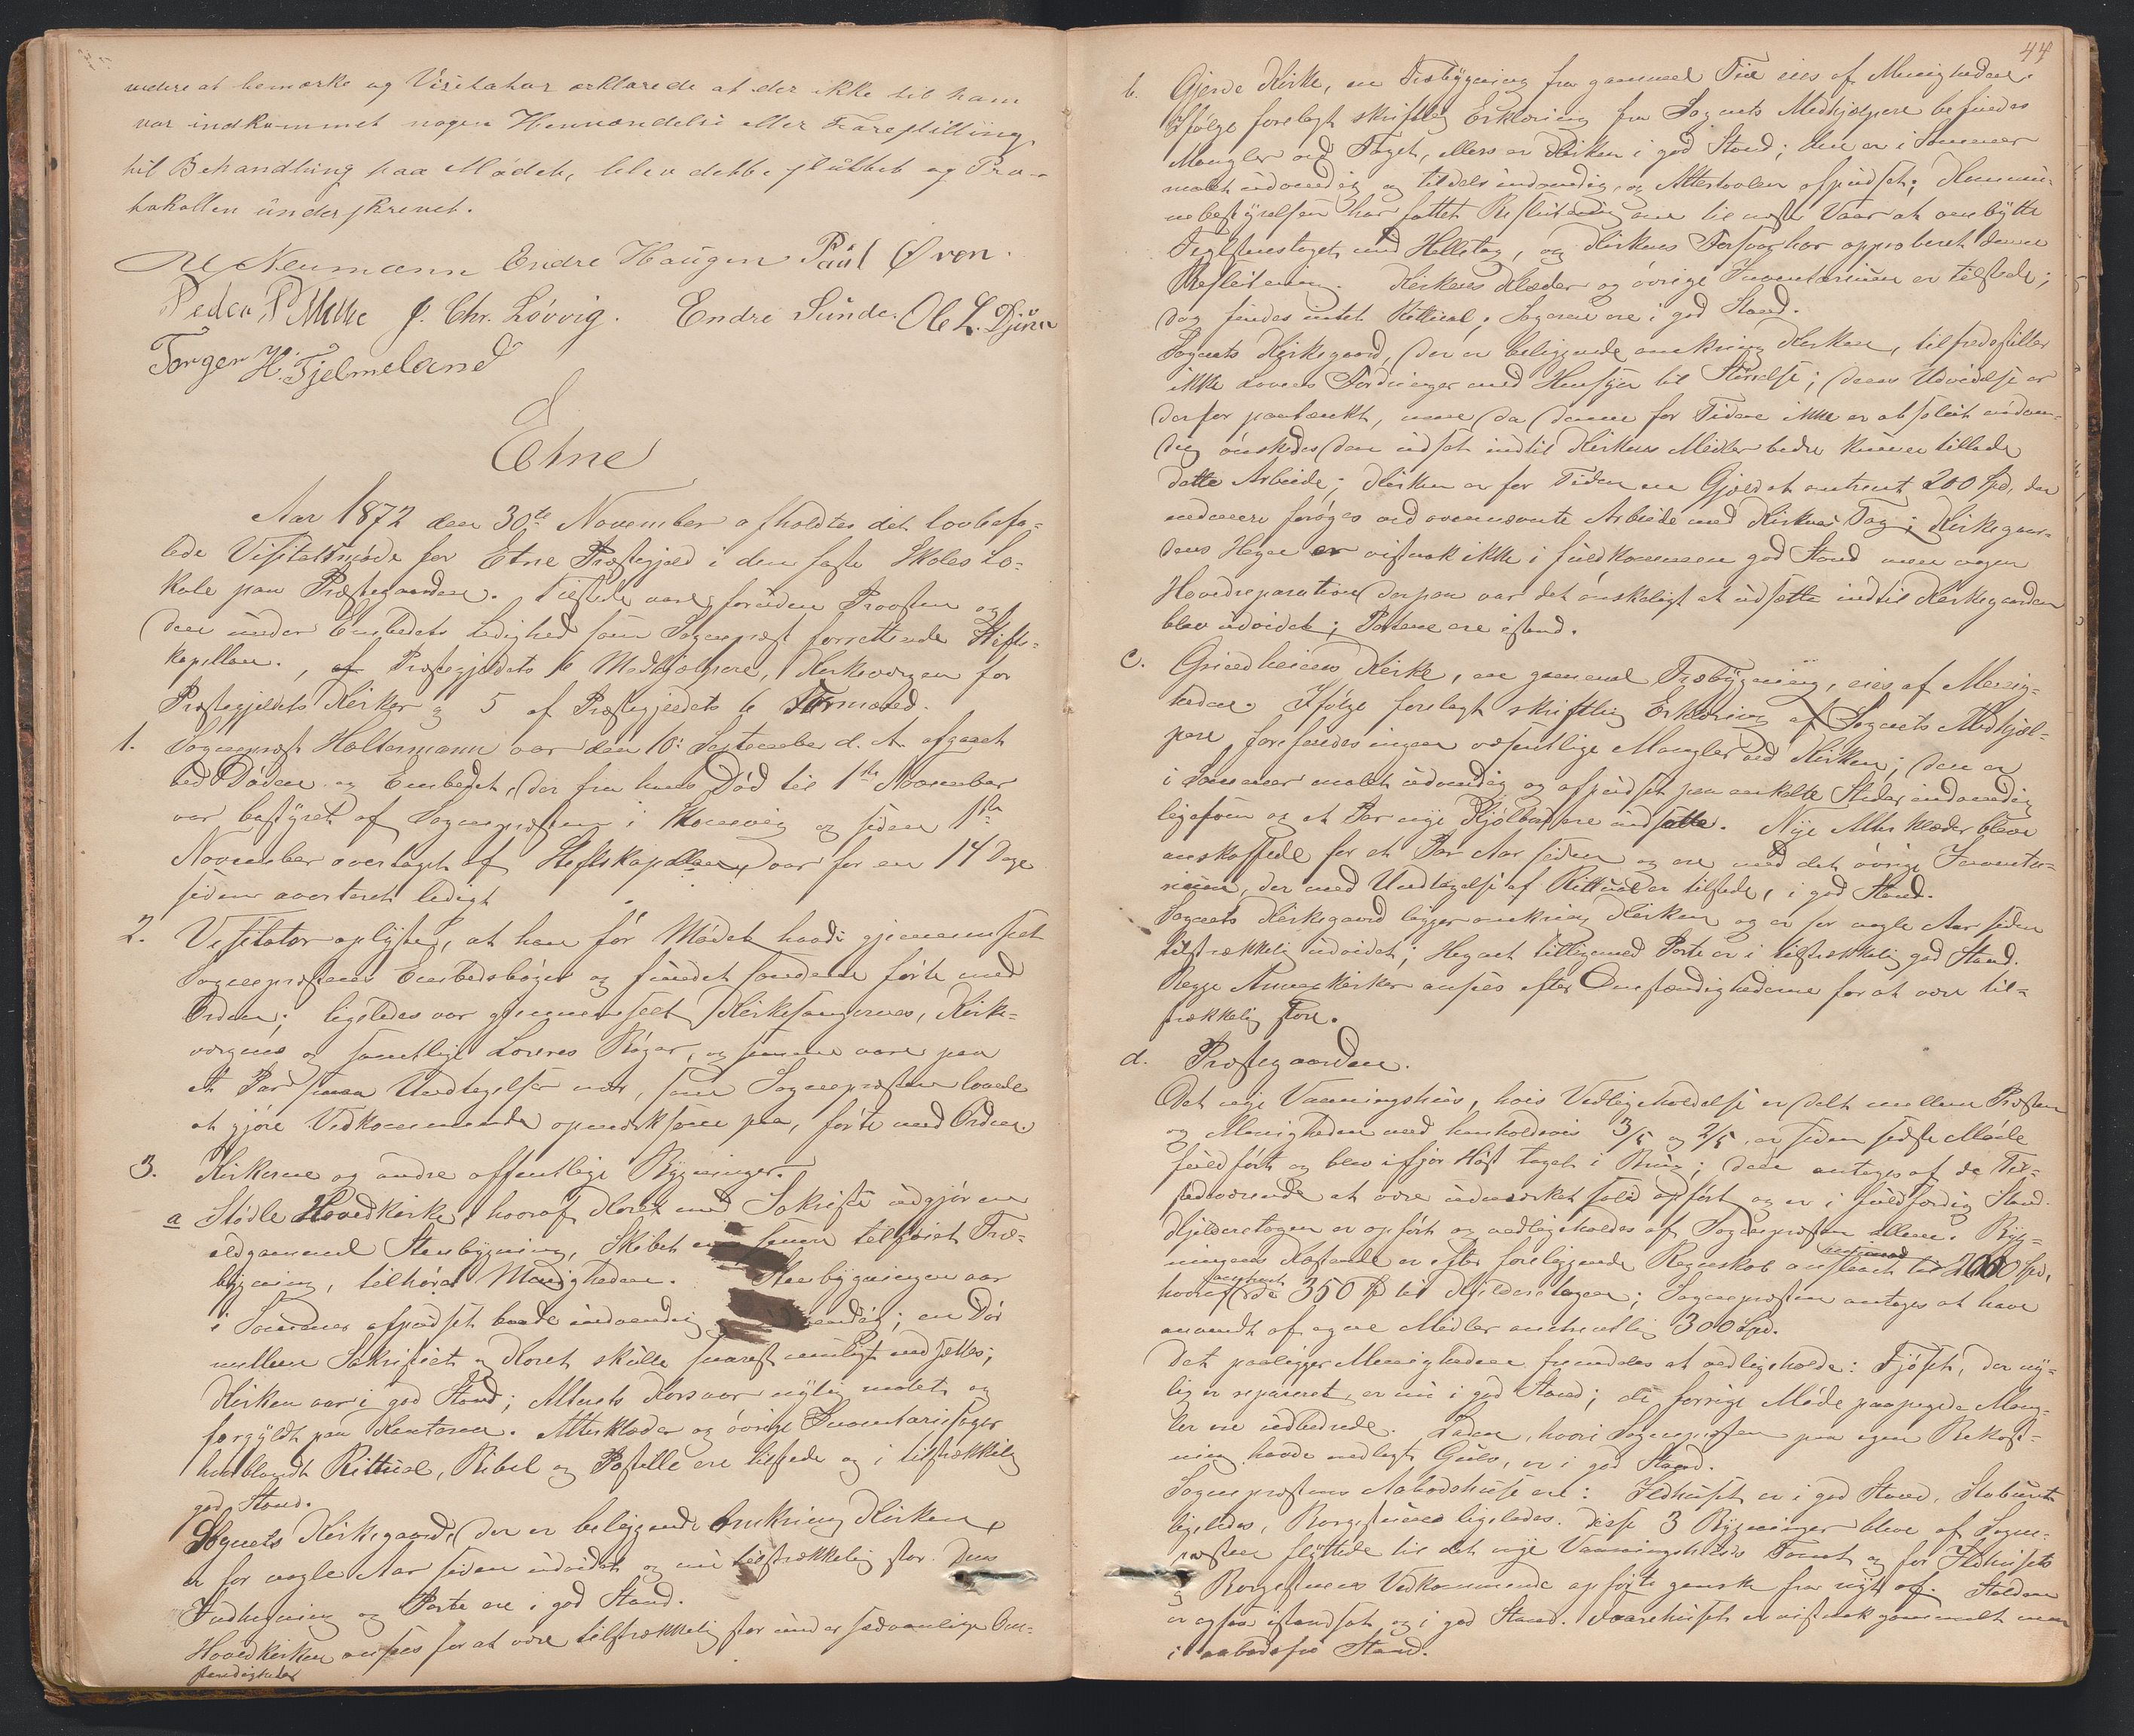 videre at bemærke og Visitator erklærede at der ikke til ham
var indkommet nogen Henvendelse eller Forestilling
til Behandling paa Mødet, blev dette sluttet og Pro-
tokollen underskrevet.
Neumann Endre Haugen Paul Øren.
Peder P J. Chr. Løvvig. Endre Sunde. Ole L.
Torger H. Fjelmeland
Etne
Aar 1872 den 30te November afholdtes det lovbefa-
lede Visitatsmøde for Etne Præstegjeld i den faste Skoles Lo-
kale paa Præstegaarden. Tilstede vare foruden Provsten og
den under Embedets Ledighed som Sognepræst forrettende Stifts-
kapellan, af Præstegjeldets 6 Medhjælpere, Kirkeværgen for
Præstegjeldets Kirker og 5 af Præstegjeldets 6 Formænd.
1. Sognepræst Haltermann var den 10: September d. A. afgaaet
ved Døden og Embedet, der fra hans Død til 1ste November
var bestyret af Sognepræsten i Skonevig og siden 1ste
November overtaget af Stiftskapellanen, var for en 14 Dage
siden averteret ledigt
2. Visitator oplyste, at han før Mødet havde gjennemseet
Sognepræstens Embedsbøger og fundet samtlige førte med
Orden; ligeledes var gjennemseet Kirkesangernes, Kirke-
værgens og samtlige Læreres Bøger, og fandtes vare paa
et Par smaa Undtagelser nær, som Sognepræsten lovede
at gjøre Vedkommende opmærksom paa, førte med Orden.
3. Kirkerne og andre offentlige Bygninger.
a Stødle Hovedkirke, hvoraf Koret med Sakristi udgjør en
ældgammel Stenbygning, Skibet en senere tilføiet Træ-
bygning, tilhører Menigheden. Stenbygningen var
i Sommer afpudset baade indvendig udvendig; en Dør
mellem Sakristiet og Koret skulde snarest muligt indsættes;
Kirken var i god Stand; Alterets Kors var nylig malet og
forgyldt paa Kanterne. Alterklæder og øvrige Inventariesager
hvoriblandt Rittual, Bibel og Postille ere tilstede og i tilstrækkelig
god Stand.
Sognets Kirkegaard, der er beliggende omkring Kirken,
er for nogle Aar siden udvidet og nu tilstrækkelig stor. Dens
Indhegning og Porte ere i god Stand.
Hovedkirken ansees for at være tilstrækkelig stor under sædvanlige Om-
stændigheder
44
b. Gjerde Kirke, en Træbygning fra gammel Tid eies af Menigheden.
Ifølge forelagt skriftlig Erklæring fra Sognets Medhjælpere befindes
Mangler ved Taget, ellers er Kirken i god Stand; den er i Sommer
malet udvendig og tildels indvendig, og Altertavlen afpudset; Kommu-
nebestyrelsen har fattet Beslutning om til næste Vaar at ombytte
Teglstenstaget med Helletag, og Kirkens Forsvar har approberet denne
Beslutning. Kirkens Klæder og øvrige Inventarium er tilstede;
dog findes intet Rittual; Sagerne ere i god Stand.
Sognets Kirkegaard, der er beliggende omkring Kirken, tilfredsstiller
ikke Lovens Fordringer med Hensyn til Størrelse; dens Udvidelse er
derfor paatænkt, men da denne for Tiden ikke er absolut nødven-
dig ønskedes den udsat indtil Kirkens Midler bedre kunne tillade
dette Arbeide; Kirken er for Tiden en Gjæld at omtrent 200 Spd, der
end mere forøges ved ovennævnte Arbeide med Kirkens Tag; Kirkegaar-
dens Hegn er vistnok ikke i fuldkommen god Stand men nogen
Hovedreparation derpaa var det ønskeligt at udsætte indtil Kirkegaarden
blev udvidet; Portene ere istand.
c. Grindheims Kirke, en gammel Træbygning, eies af Menig-
heden. Ifølge forelagt skriftlig Erklæring af Sognets Medhjæl-
pere forefindes ingen væsentlige Mangler ved Kirken; den er
i Sommer malet udvendig og afpudset paa enkelte Steder indvendig
ligesom og et Par nye indsatte. Nye Alterklæder bleve
anskaffede for et Par Aar siden og ere med det øvrige Inventa-
rium, der med Undtagelse af Rittual er tilstede, i god Stand.
Sognets Kirkegaard ligger omkring Kirken og er for nogle Aar siden
tilstrækkelig udvidet; Hegnet tilligemed Porte er i tilstrækkelig god Stand.
Begge Annexkirker ansees efter Omstændighederne for at være til-
strækkelig store.
d. Præstegaarden.
Det nye Vaaningshuus, hvis Vedligeholdelse er delt mellem Præsten
og Menigheden med henholdsvis 3/5 og 2/5, er siden sidste Møde
fuldført og blev ifjor Høst taget i Brug; det antages af de Til-
stedeværende at være udmærket solid opført og er i fuldfærdig Stand.
Kjelderetagen er opført og vedligeholdes af Sognepræsten allene. Byg-
ningens Kostende er efter foreliggende Regnskab anslaaet til 2000 Spd,
hvoraf omtrent 350 Spd til Kjelderetagen; Sognepræsten antages at have
anvendt af egne Midler omtrentlig 300 Spd.
Det paaligger Menigheden fremdeles at vedligeholde: Fjøset, der ny-
lig er repareret, er nu i god Stand; de forrige Møde paapegede Mang-
ler ere udbedrede. Laden, hvori Sognepræsten paa egen Bekost-
ning havde nedlagt Gulv, er i god Stand.
Sognepræstens Aabodshuse ere: Ildhuset er i god Stand, Stabburet
ligeledes, Borgestuen ligeledes. Disse 3 Bygninger bleve af Sogne-
præsten flyttede til det nye Vaaningshuses Tomt og for Ildhusets
og Borgestuens Vedkommende opførte ganske fra nyt af. Stalden
er ogsaa istandsat og i god Stand. er vistnok gammelt men
i aabodsfri Stand.